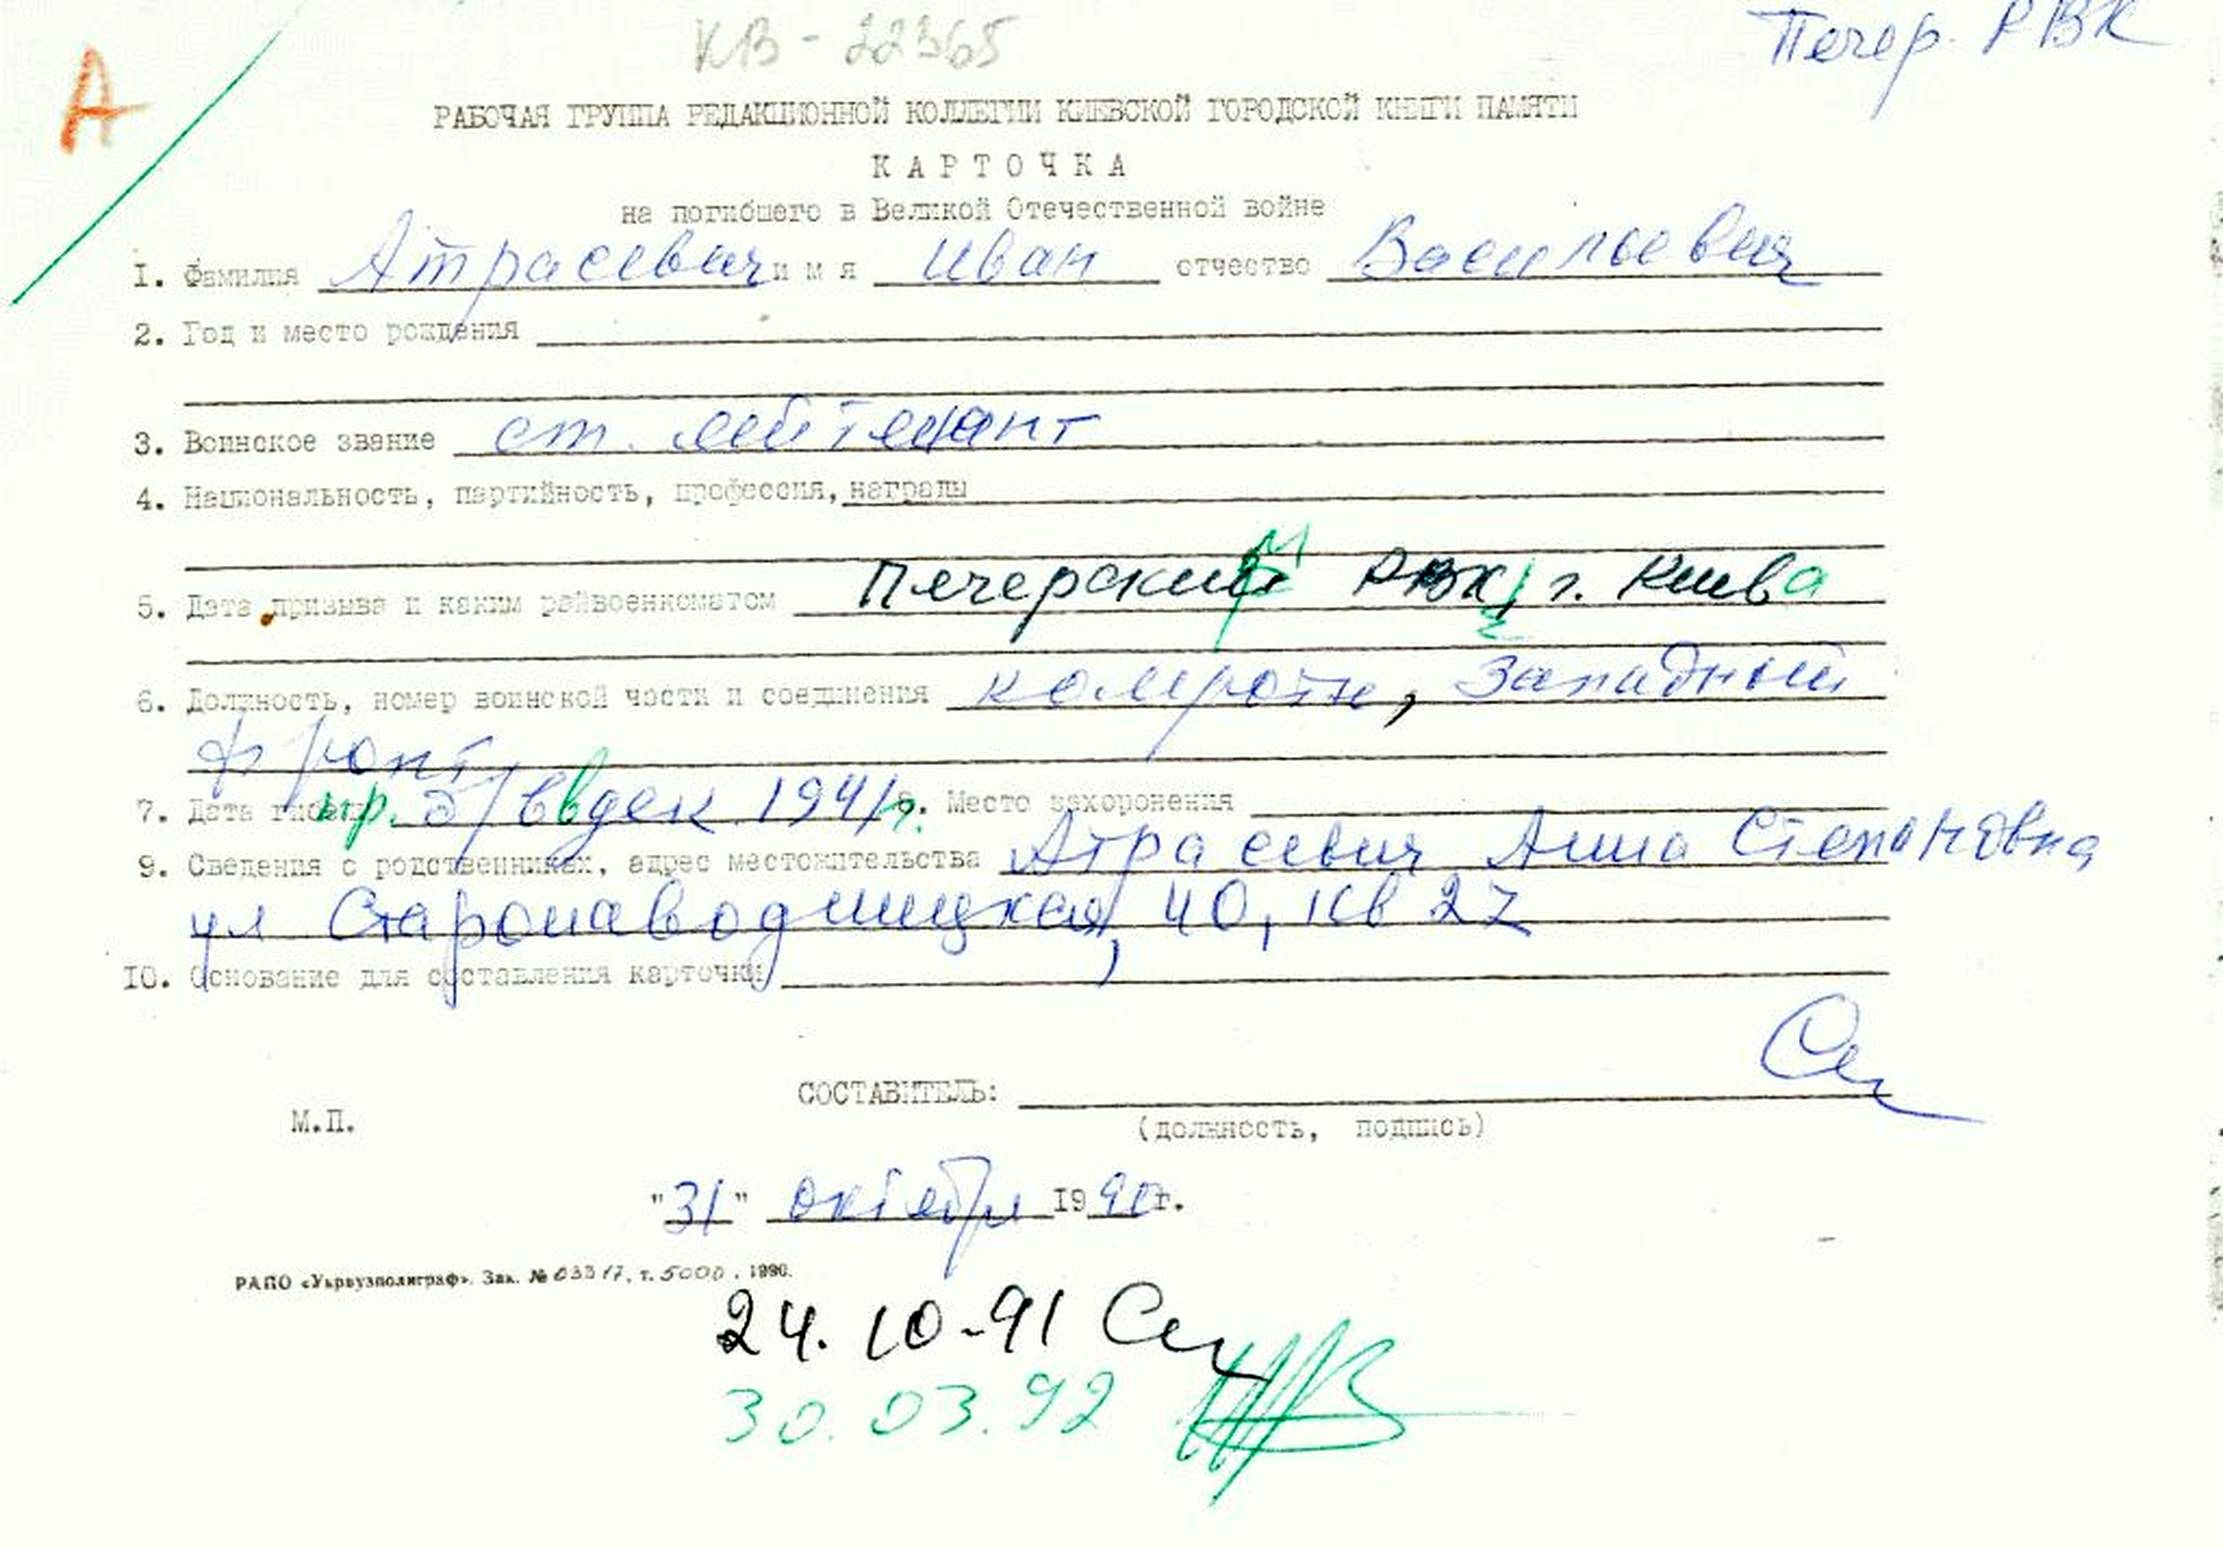 КВ - 22365
Печер. РВК
А
РАБОЧАЯ ГРУППА РЕДАКЦИОННОЙ КОЛЛЕГИИ КИЕВСКОЙ ГОРОДСКОЙ КНИГИ ПАМЯТИ
КАРТОЧКА
на погибшего в Великой Отечественной войне
1. Фамилия Атрасевич имя Иван отчество Васильевич
2. Год и место рождения
3. Воинское звание ст. лейтенант
4. Национальность, партийность, профессия, награды
5. Дата призыва и каким райвоенкоматом Печерский РВК, г. Киева
6. Должность, номер воинской части и соединения комроты, Западный
фронт
7. Дата гибели пр. б/в в дек 1941 г. 8. Место захоронения
9. Сведения о родственниках, адрес местожительства Атрасевич Анна Степановна
ул Старонаводницкая, 40, кв 27
10. Основание для составления карточки
СОСТАВИТЕЛЬ:
М.П. (должность, подпись)
"31" октября 1990г.
РАПО «Укрвузполиграф». Зак. № 03317, т. 5000. 1990.
24. 10-91
30. 03. 92